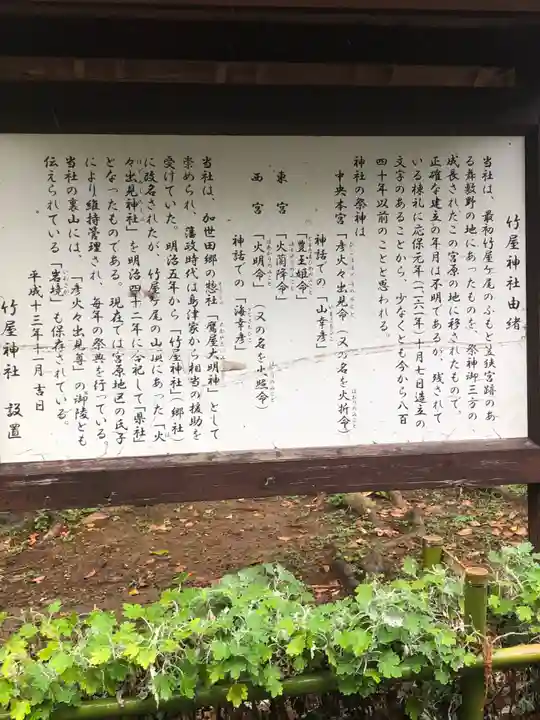 竹屋神社由緒
当社は、最初竹屋ケ尾のふもと笠狭宮跡のあ
る舞敷野の地にあったものを、祭神御三方の
成長されたこの宮原の地に移されたもので、
正確な建立の年月は不明であるが、残されて
いる棟礼に応保元年(一一六一年)十月七日造立の
文字のあることから、少なくとも今から八百
四十年以前のことと思われる。
神社の祭神は
中央本宮「彦火々出見命」(又の名を火折命)
神話での「山幸彦」
「豊玉姫命」
東宮「火蘭降命」
神話での「海幸彦」
西宮「火明命」(又の名を小照命)
当社は、加世田郷の惣社「鷹屋大明神」として
崇められ、藩政時代は島津家から相当の援助を
受けていた。明治五年から「竹屋神社」(郷社)
に改名されたが、竹屋ケ尾の山頂にあった「火
々出見神社」を明治四十二年に合祀して「県社」
となったものである。現在では宮原地区の氏子
により維持管理され、毎年の祭典を行っている。
当社の裏山には、「彦火々出見尊」の御陵とも
伝えられている「岩境」も保存されている。
平成十三年十一月吉日
竹屋神社 設置